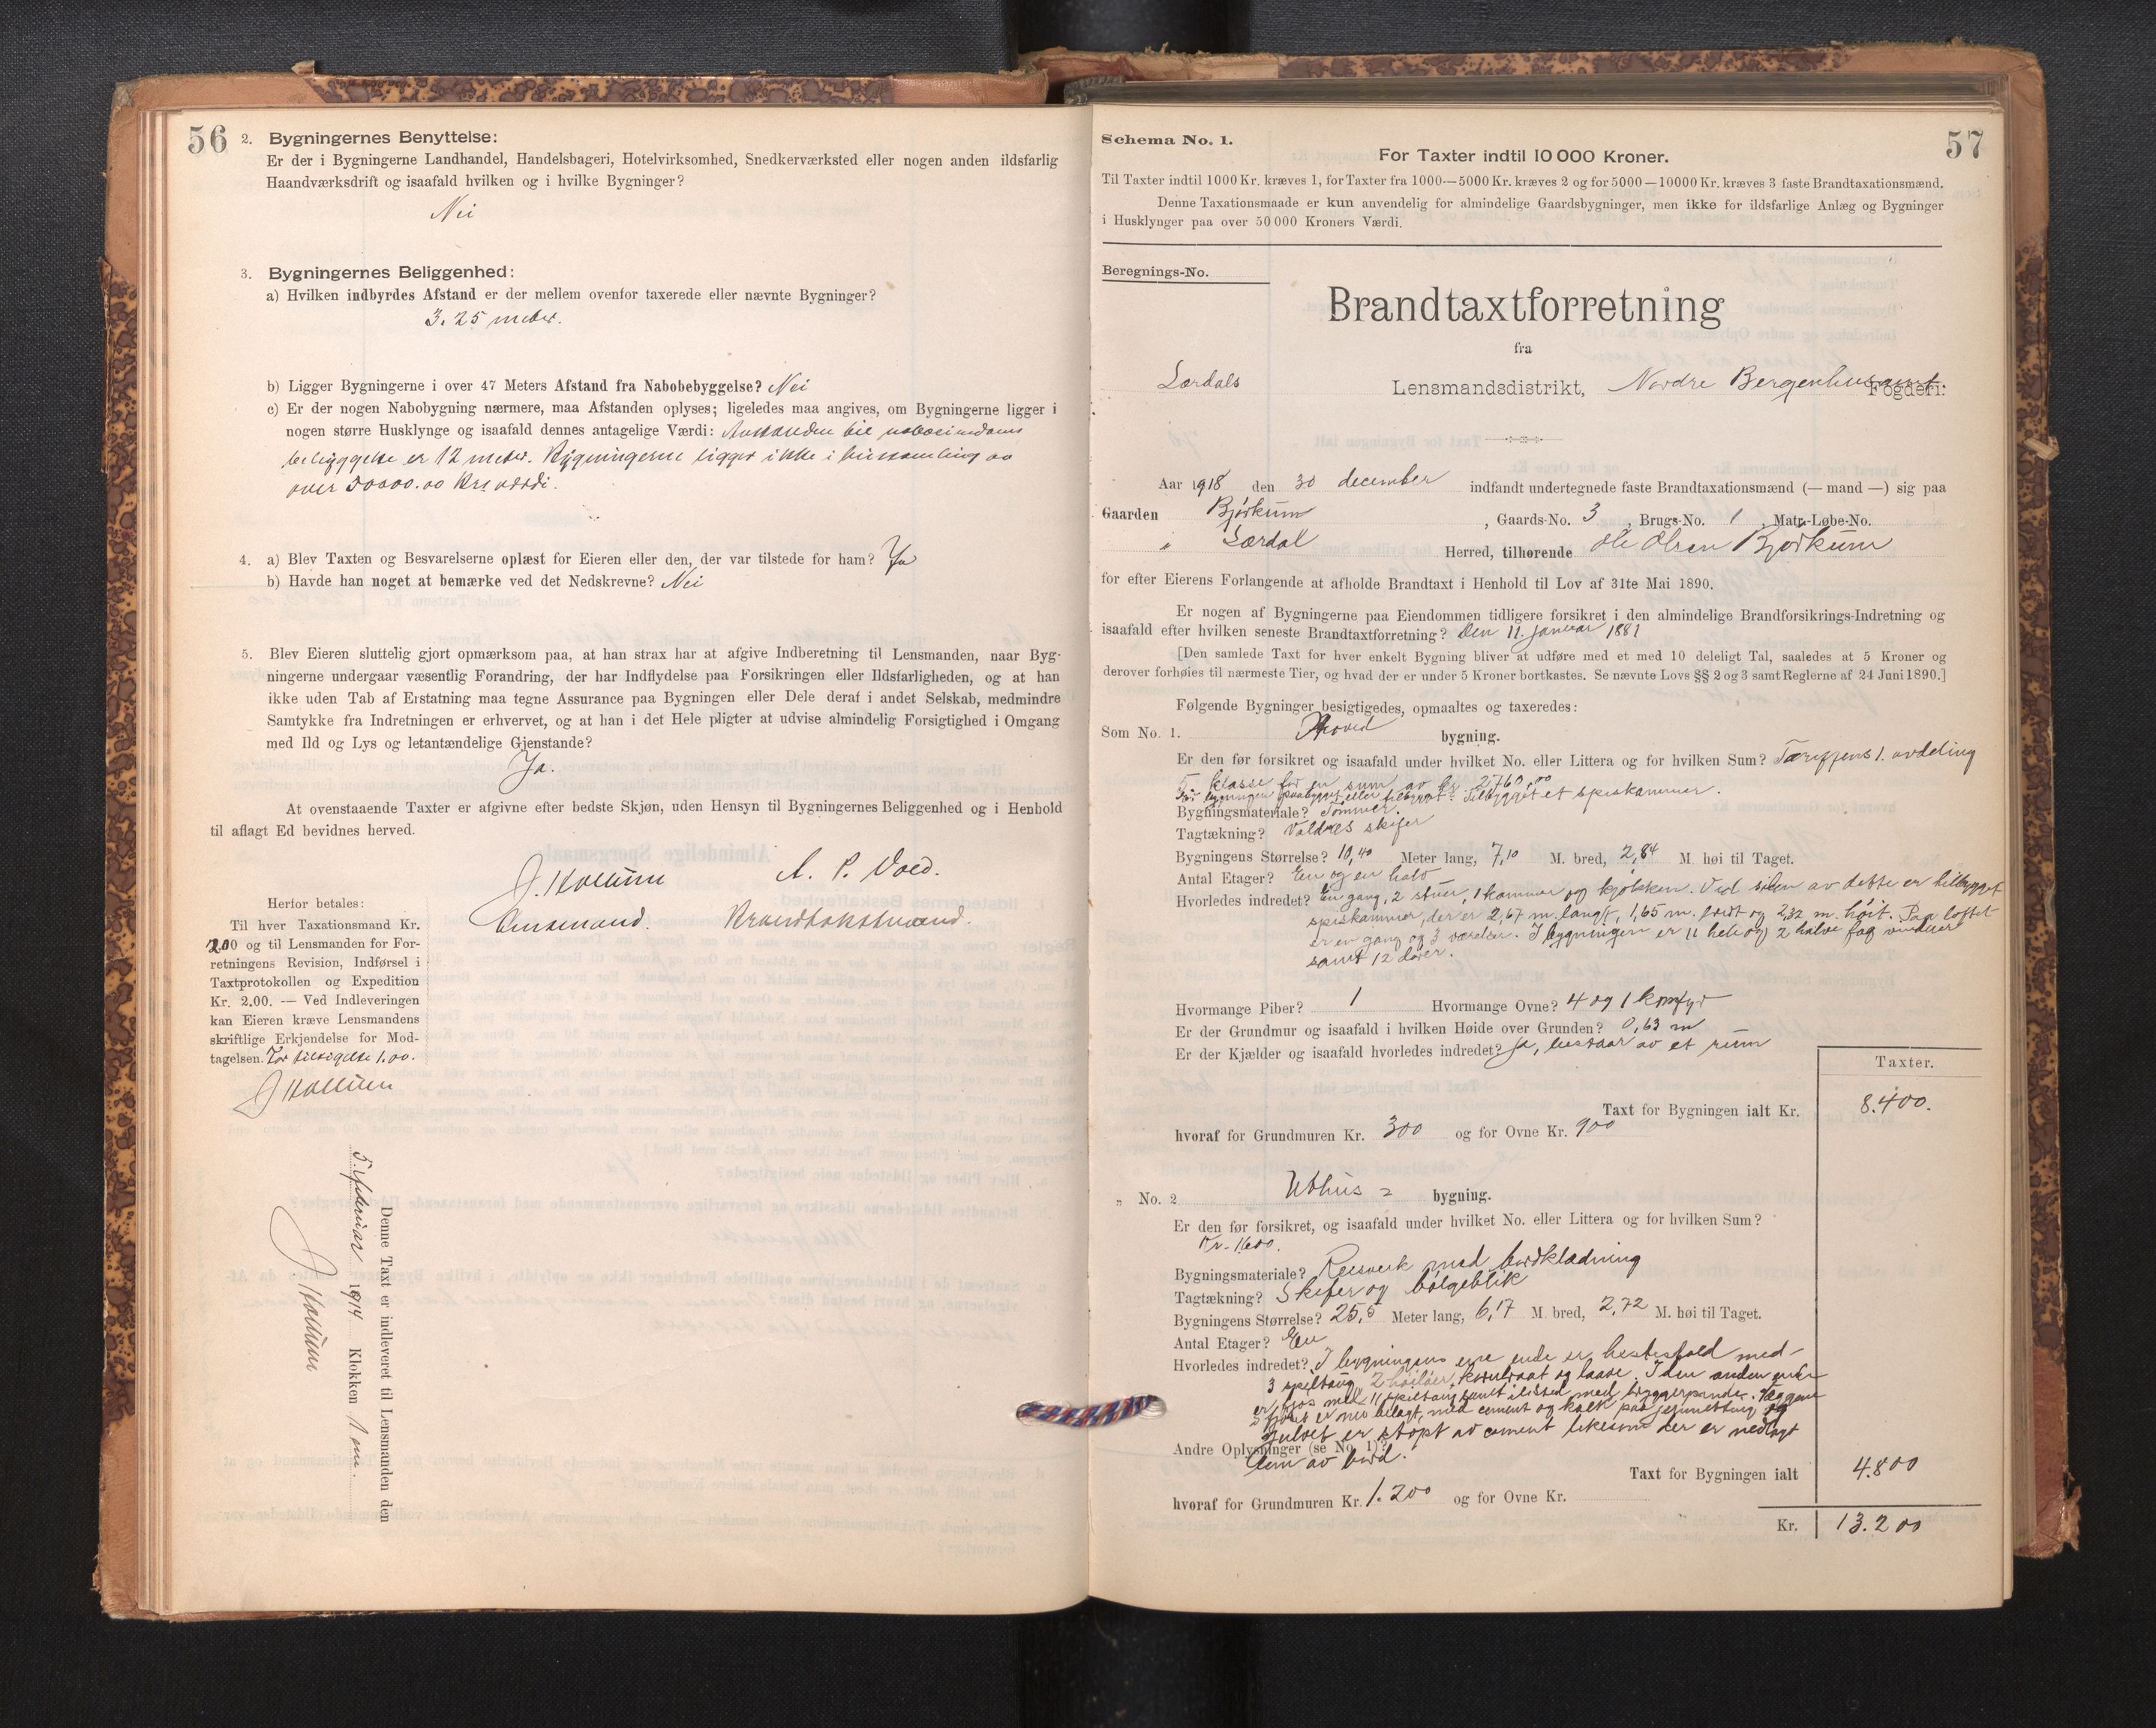 56
2. Bygningernes Benyttelse:
Er der i Bygningerne Landhandel, Handelsbageri, Hotelvirksomhed, Snedkerværksted eller nogen anden ildsfarlig
Haandværksdrift og isaafald hvilken og i hvilke Bygninger?
Nei
3. Bygningernes Beliggenhed:
a) Hvilken indbyrdes Afstand er der mellem ovenfor taxerede eller nævnte Bygninger?
3.25 meter.
b) Ligger Bygningerne i over 47 Meters Afstand fra Nabobebyggelse? Nei
c) Er der nogen Nabobygning nærmere, maa Afstanden oplyses; ligeledes maa angives, om Bygningerne ligger i
nogen større Husklynge og isaafald dennes antagelige Værdi: Avstanden til naboeiendoms
bebyggelse er 12 meter. Bygningerne ligger ikke i hussamling av
over 50000.00 Krs værdi.
4. a) Blev Taxten og Besvarelserne oplæst for Eieren eller den, der var tilstede for ham? Ja
b) Havde han noget at bemærke ved det Nedskrevne? Nei
5. Blev Eieren sluttelig gjort opmærksom paa, at han strax har at afgive Indberetning til Lensmanden, naar Byg-
ningerne undergaar væsentlig Forandring, der har Indflydelse paa Forsikringen eller Ildsfarligheden, og at han
ikke uden Tab af Erstatning maa tegne Assurance paa Bygningen eller Dele deraf i andet Selskab, medmindre
Samtykke fra Indretningen er erhvervet, og at han i det Hele pligter at udvise almindelig Forsigtighed i Omgang
med Ild og Lys og letantændelige Gjenstande?
Ja.
At ovenstaaende Taxter er afgivne efter bedste Skjøn, uden Hensyn til Bygningernes Beliggenhed og i Henhold
til aflagt Ed bevidnes herved.
A. P. Vold.
Lensmand. Brandtakstmand.
Herfor betales:
Til hver Taxationsmand Kr.
2.00 og til Lensmanden for For-
retningens Revision, Indførsel i
Taxtprotokollen og Expedition
Kr. 2.00. — Ved Indleveringen
kan Eieren kræve Lensmandens
skriftlige Erkjendelse for Mod-
tagelsen. For tilsigelse 1,00.
Denne Taxt er indleveret til Lensmanden den
5. februar 1914 Klokken 1 em.
57
Schema No. 1.
For Taxter indtil 10 000 Kroner.
Til Taxter indtil 1000 Kr. kræves 1, for Taxter fra 1000—5000 Kr. kræves 2 og for 5000—10000 Kr. kræves 3 faste Brandtaxationsmænd.
Denne Taxationsmaade er kun anvendelig for almindelige Gaardsbygninger, men ikke for ildsfarlige Anlæg og Bygninger
i Husklynger paa over 50 000 Kroners Værdi.
Beregnings-No.
Brandtaxtforretning
fra
Lærdals Lensmandsdistrikt, Nordre Bergenhusamt. Fogderi:
Aar 1918 den 30 december indfandt undertegnede faste Brandtaxationsmænd (— mand —) sig paa
Gaarden Bjørkum, Gaards-No. 3, Brugs-No. 1, Matr.-Løbe-No.
i Lærdal Herred, tilhørende Ole Olsen Bjørkum
for efter Eierens Forlangende at afholde Brandtaxt i Henhold til Lov af 31te Mai 1890.
Er nogen af Bygningerne paa Eiendommen tidligere forsikret i den almindelige Brandforsikrings-Indretning og
isaafald efter hvilken seneste Brandtaxtforretning? Den 11. januar 1881
[Den samlede Taxt for hver enkelt Bygning bliver at udføre med et med 10 deleligt Tal, saaledes at 5 Kroner og
derover forhøies til nærmeste Tier, og hvad der er under 5 Kroner bortkastes. Se nævnte Lovs §§ 2 og 3 samt Reglerne af 24 Juni 1890.]
Følgende Bygninger besigtigedes, opmaaltes og taxeredes:
Som No. 1. Hoved bygning.
Er den før forsikret og isaafald under hvilket No. eller Littera og for hvilken Sum? Tariffens 1. avdeling
5. klasse for en sum av kr. 2760,00
Er bygningen paabygget eller tilbygget? Tilbygget et spiskammer.
Bygningsmateriale? Tømmer.
Tagtækning? Valdres skifer
Bygningens Størrelse? 10,40 Meter lang, 7,10 M. bred, 2,84 M. høi til Taget.
Antal Etager? En og en halv
Hvorledes indredet? En gang, 2 stuer, 1 kammer og kjøkken. Ved siden av dette er tilbygget
spiskammer, der er 2,67 m. langt, 1,65 m. bredt og 2,32 m. høit. Paa loftet
er en gang og 3 værelser. I bygningen er 11 hele og 2 halve fag vinduer
samt 12 dører.
Hvormange Piber? 1 Hvormange Ovne? 4 og 1 komfyr
Er der Grundmur og isaafald i hvilken Høide over Grunden? 0,63 m
Er der Kjælder og isaafald hvorledes indredet? Ja, bestaar av et rum
Taxter.
Taxt for Bygningen ialt Kr. 8.400.
hvoraf for Grundmuren Kr. 300 og for Ovne Kr. 900
„ No. 2 Uthus - bygning.
Er den før forsikret, og isaafald under hvilket No. eller Littera og for hvilken Sum?
Kr. 1600.
Bygningsmateriale? Reisverk med bordklædning
Tagtækning? Skifer og bølgeblik
Bygningens Størrelse? 25,5 Meter lang, 6,17 M. bred, 2,72 M. høi til Taget.
Antal Etager? En
Hvorledes indredet? I bygningens ene ende er hestestald med
3 spiltaug, 2 høiloer, kornloft og laave. I den anden ende
er fjøs med 11 spiltaug samt ildsted med bryggepande. Væggene
i fjøset er belagt, med cement og kalk paa jernnetting, og
gulvet er støpt av cement likesom der er nedlagt
Andre Oplysninger (se No. 1)?
lem av bord.
Taxt for Bygningen ialt 4.800
hvoraf for Grundmuren Kr. 1.200 og for Ovne Kr.
Kr. 13.200